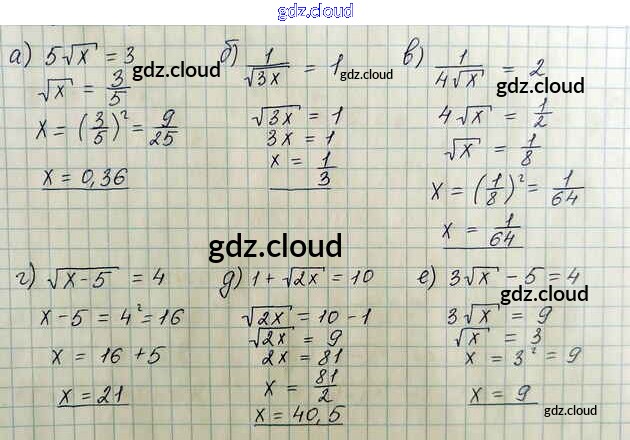 gdz.cloud
а) 5√x = 3
√x = 3/5
x = (3/5)² = 9/25
x = 0,36
gdz.cloud
б) 1/√3x = 1
√3x = 1
3x = 1
x = 1/3
gdz.cloud
в) 1/4√x = 2
4√x = 1/2
√x = 1/8
x = (1/8)² = 1/64
x = 1/64
gdz.cloud
gdz.cloud
г) √x-5 = 4
x-5 = 4² = 16
x = 16+5
x = 21
д) 1+√2x = 10
√2x = 10-1
√2x = 9
2x = 81
x = 81/2
x = 40,5
е) 3√x - 5 = 4
gdz.cloud
3√x = 9
√x = 3
x = 3² = 9
x = 9
gdz.cloud